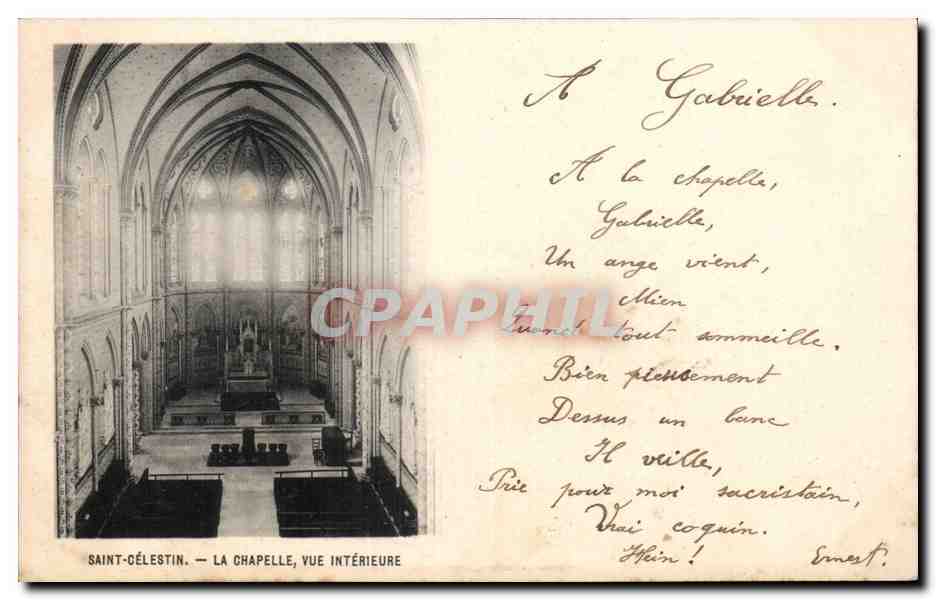 A Gabrielle.
A la chapelle,
Gabrielle,
Un ange vient,
Mien
Quand tout sommeille.
Bien pieusement
Dessus un banc
Il veille,
Prie pour moi sacristain,
Vrai coquin.
Hein! Ernest.
CPAPHIL
SAINT-CÉLESTIN. — LA CHAPELLE, VUE INTÉRIEURE